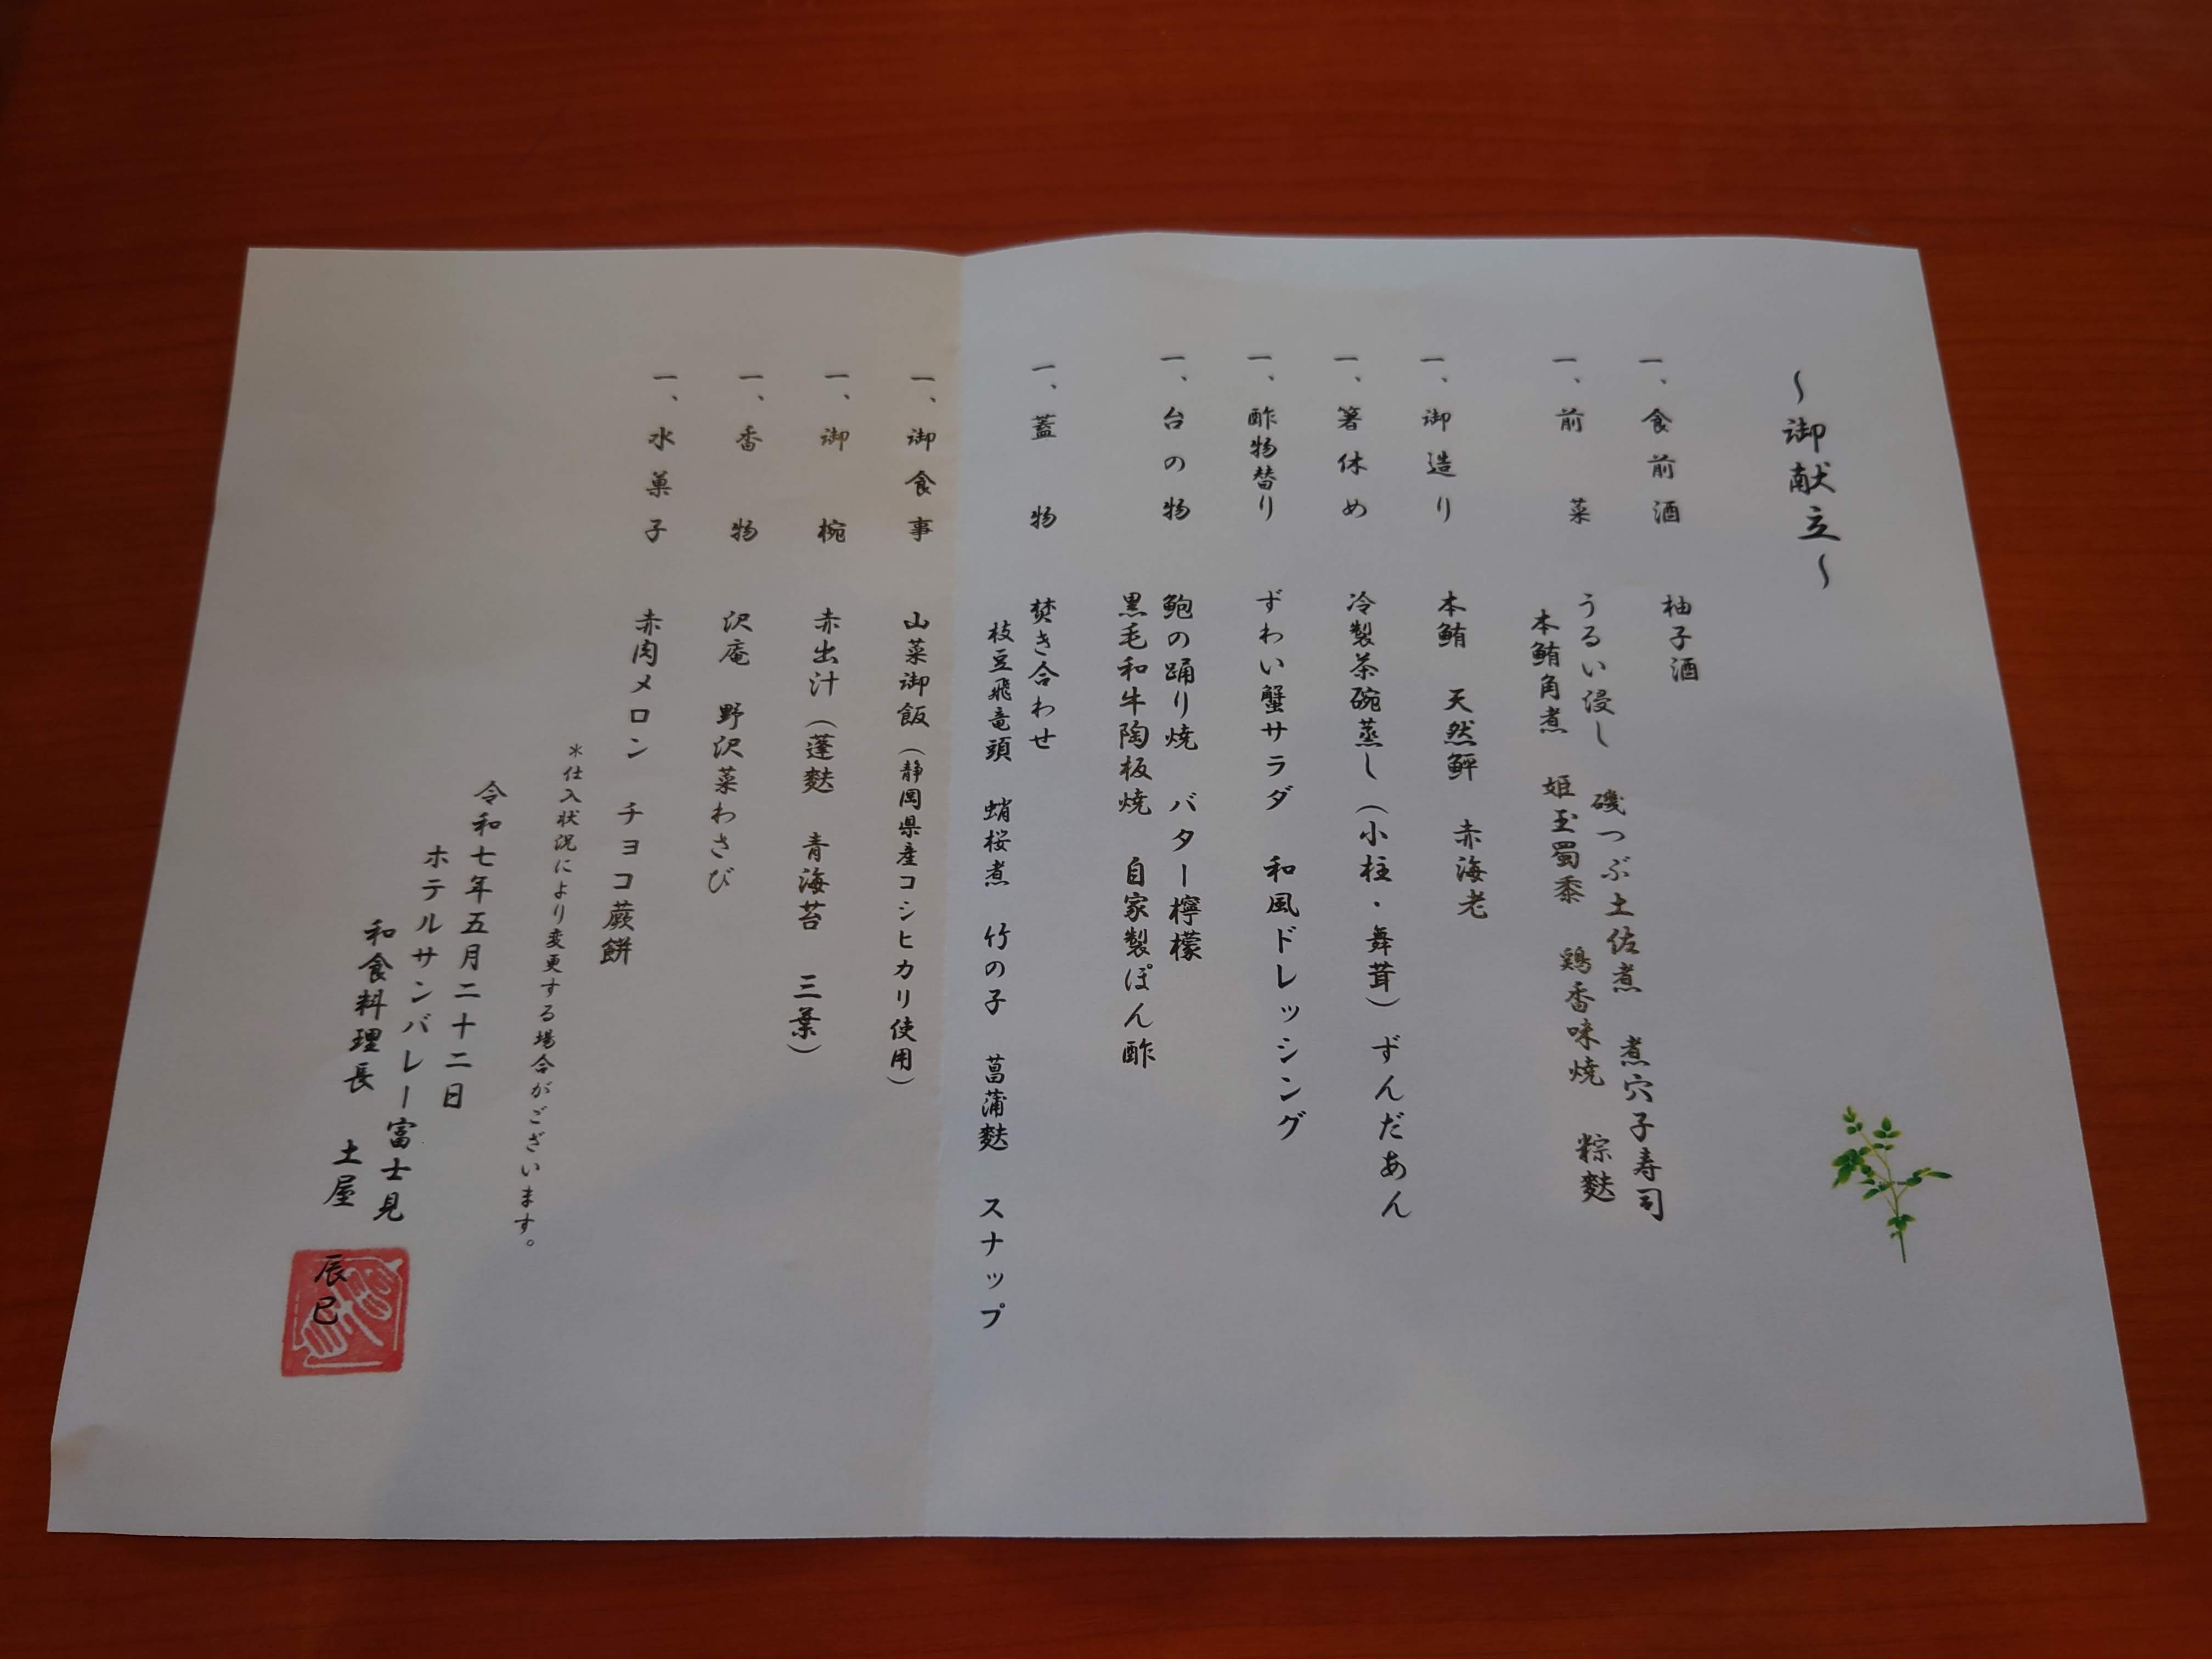 ～御献立～
一、食前酒 柚子酒
一、前菜 うるい浸し 磯つぶ土佐煮 煮穴子寿司
本鮪角煮 姫玉蜀黍 鶏香味焼 粽麩
一、御造り 本鮪 天然鮃 赤海老
一、箸休め 冷製茶碗蒸し（小柱・舞茸）ずんだあん
一、酢物替り ずわい蟹サラダ 和風ドレッシング
一、台の物 鮑の踊り焼 バター檸檬
黒毛和牛陶板焼 自家製ぽん酢
一、蓋物 焚き合わせ
枝豆飛竜頭 蛸桜煮 竹の子 菖蒲麩 スナップ
一、御食事 山菜御飯（静岡県産コシヒカリ使用）
一、御椀 赤出汁（蓬麩 青海苔 三葉）
一、香物 沢庵 野沢菜わさび
一、水菓子 赤肉メロン チョコ蕨餅
＊仕入状況により変更する場合がございます。
令和七年五月二十二日
ホテルサンバレー富士見
和食料理長 土屋 辰巳